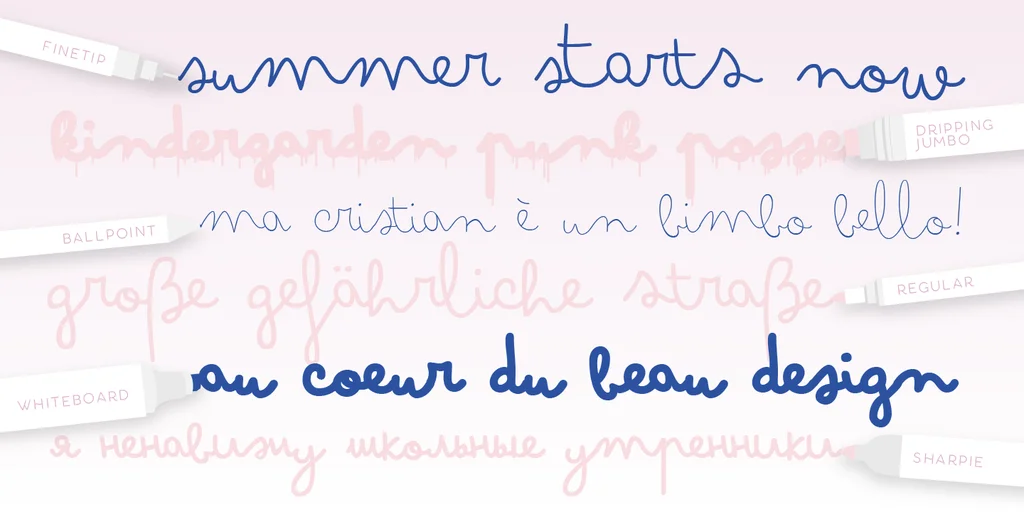 FINETIP summer starts now
kindergarden punk posse DRIPPING JUMBO
BALLPOINT ma cristian è un bimbo bello!
große gefährliche straße REGULAR
WHITEBOARD au coeur du beau design
я ненавижу школьные утренники SHARPIE